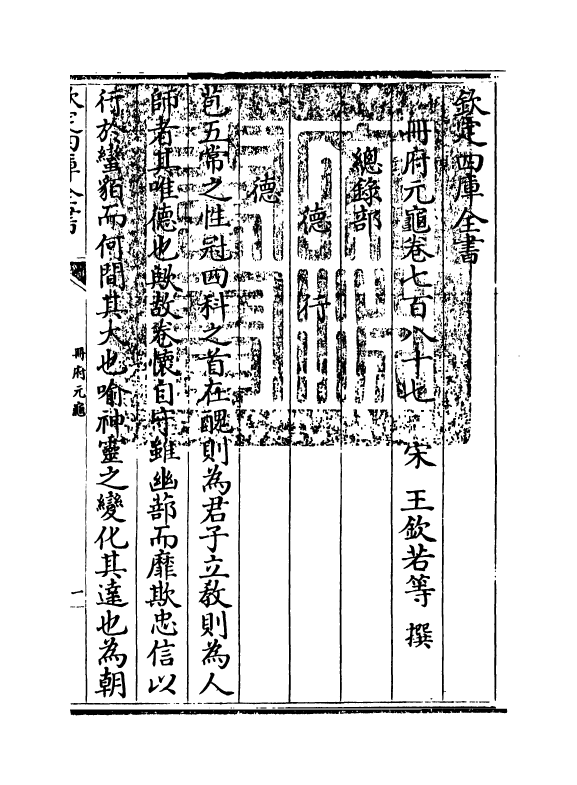 欽定四庫全書
冊府元龜卷七百八十七　宋　王欽若等　撰
總錄部
德行
德
苞五常之性冠四科之首在醜則為君子立教則為人
師者其唯德也歟故卷懷自守雖幽蔀而靡欺忠信以
行於蠻貊而何間其大也喻神靈之變化其達也為朝
冊府元龜
一